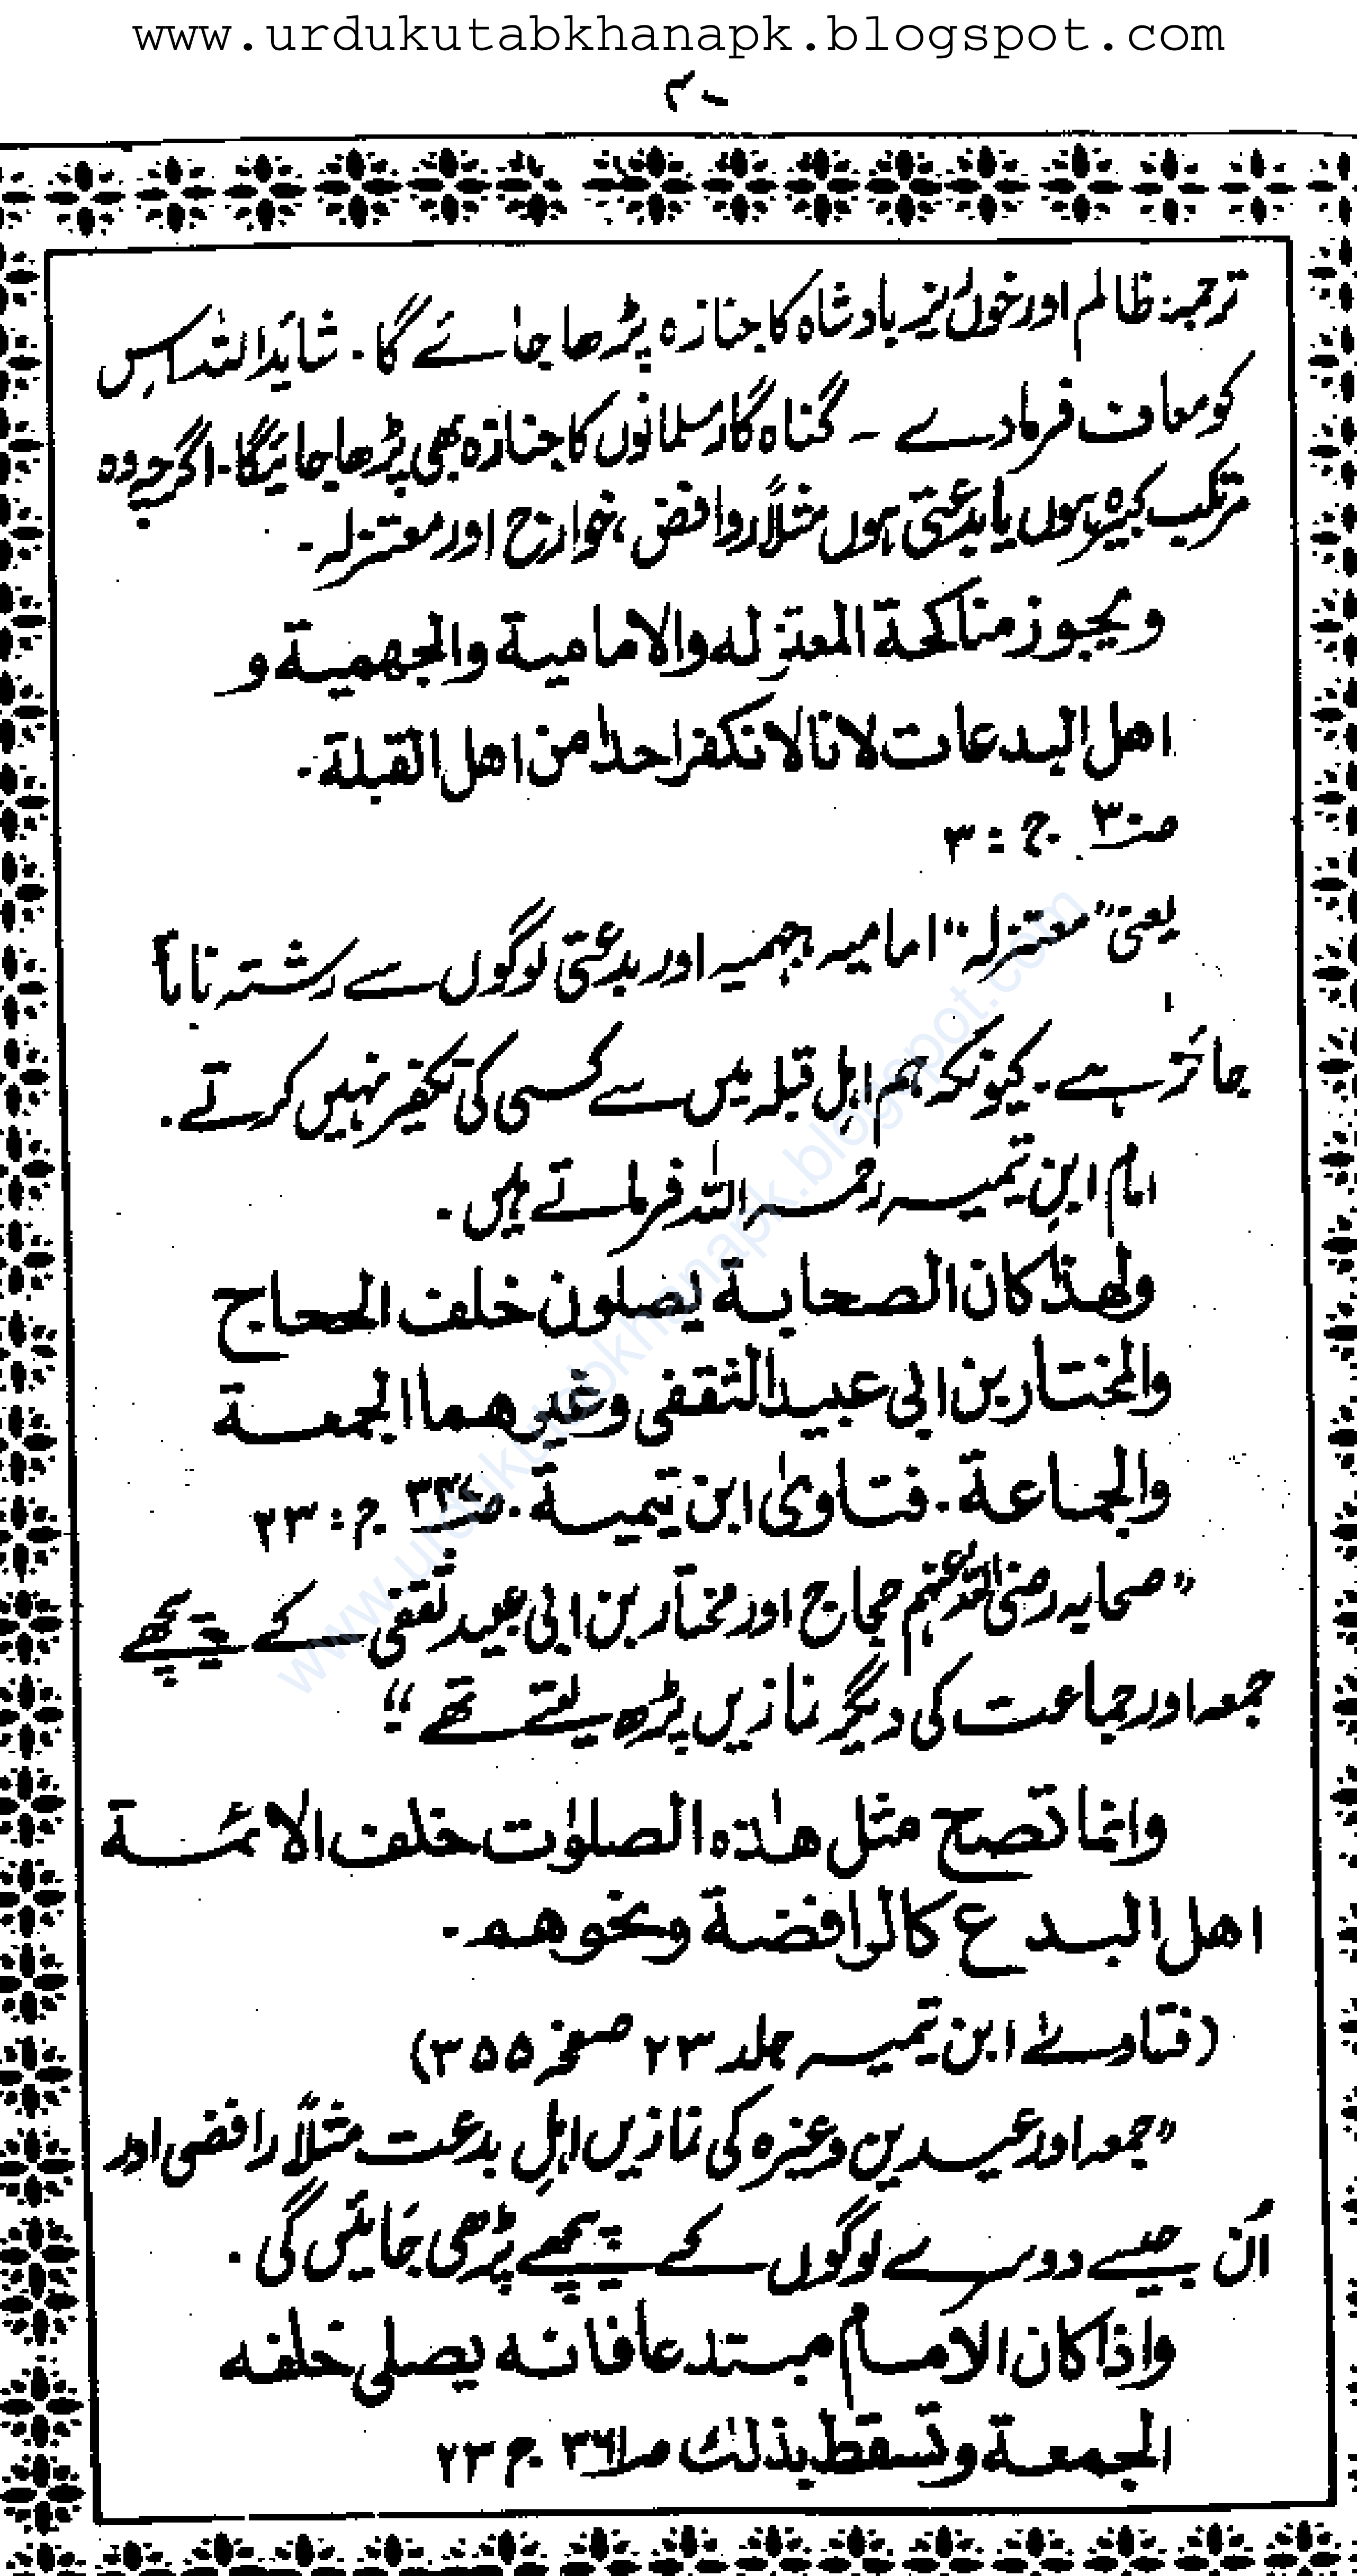 www.urdukutabkhanapk.blogspot.com
۳۰
ترجمہ: ظالم اور خوں ریز بادشاہ کا جنازہ پڑھا جائے گا۔ شائد اللہ اس
کو معاف فرما دے ۔ گناہ گار مسلمانوں کا جنازہ بھی پڑھا جائیگا۔ اگرچہ وہ
مرتکب کبیرہ ہوں یا بدعتی ہوں مثلاً روافض، خوارج اور معتزلہ ۔
ویجوز مناکحة المعتزله والامامیة والجهمیة و
اهل البدعات لانا لا نکفر احدا من اهل القبلة ۔
ج : ۳
یعنی "معتزلہ" امامیہ جہمیہ اور بدعتی لوگوں سے رشتہ ناتا
جائز ہے۔ کیونکہ ہم اہلِ قبلہ میں سے کسی کی تکفیر نہیں کرتے ۔
امام ابنِ تیمیہ رحمہ اللہ فرماتے ہیں ۔
ولهذا کان الصحابة یصلون خلف الحجاج
والمختار بن ابی عبید الثقفی وغیرهما الجمعة
والجماعة ۔ فتاویٰ ابن تیمیة ۔ ج : ۲۳
"صحابہ رضی اللہ عنہم حجاج اور مختار بن ابی عبید ثقفی کے پیچھے
جمعہ اور جماعت کی دیگر نمازیں پڑھ لیتے تھے"
وانما تصح مثل هٰذه الصلوٰت خلف الائمة
اهل البدع کالرافضة ونحوهم ۔
(فتاوے ابن تیمیہ جلد ۲۳ صفحہ ۳۵۵)
"جمعہ اور عیدین وغیرہ کی نمازیں اہلِ بدعت مثلاً رافضی اور
اُن جیسے دوسرے لوگوں کے پیچھے پڑھی جائیں گی ۔
واذا کان الامام مبتدعا فانه یصلی خلفه
الجمعة وتسقط بذلک صـ۳۶۱ ج ۲۳
www.urdukutabkhanapk.blogspot.com